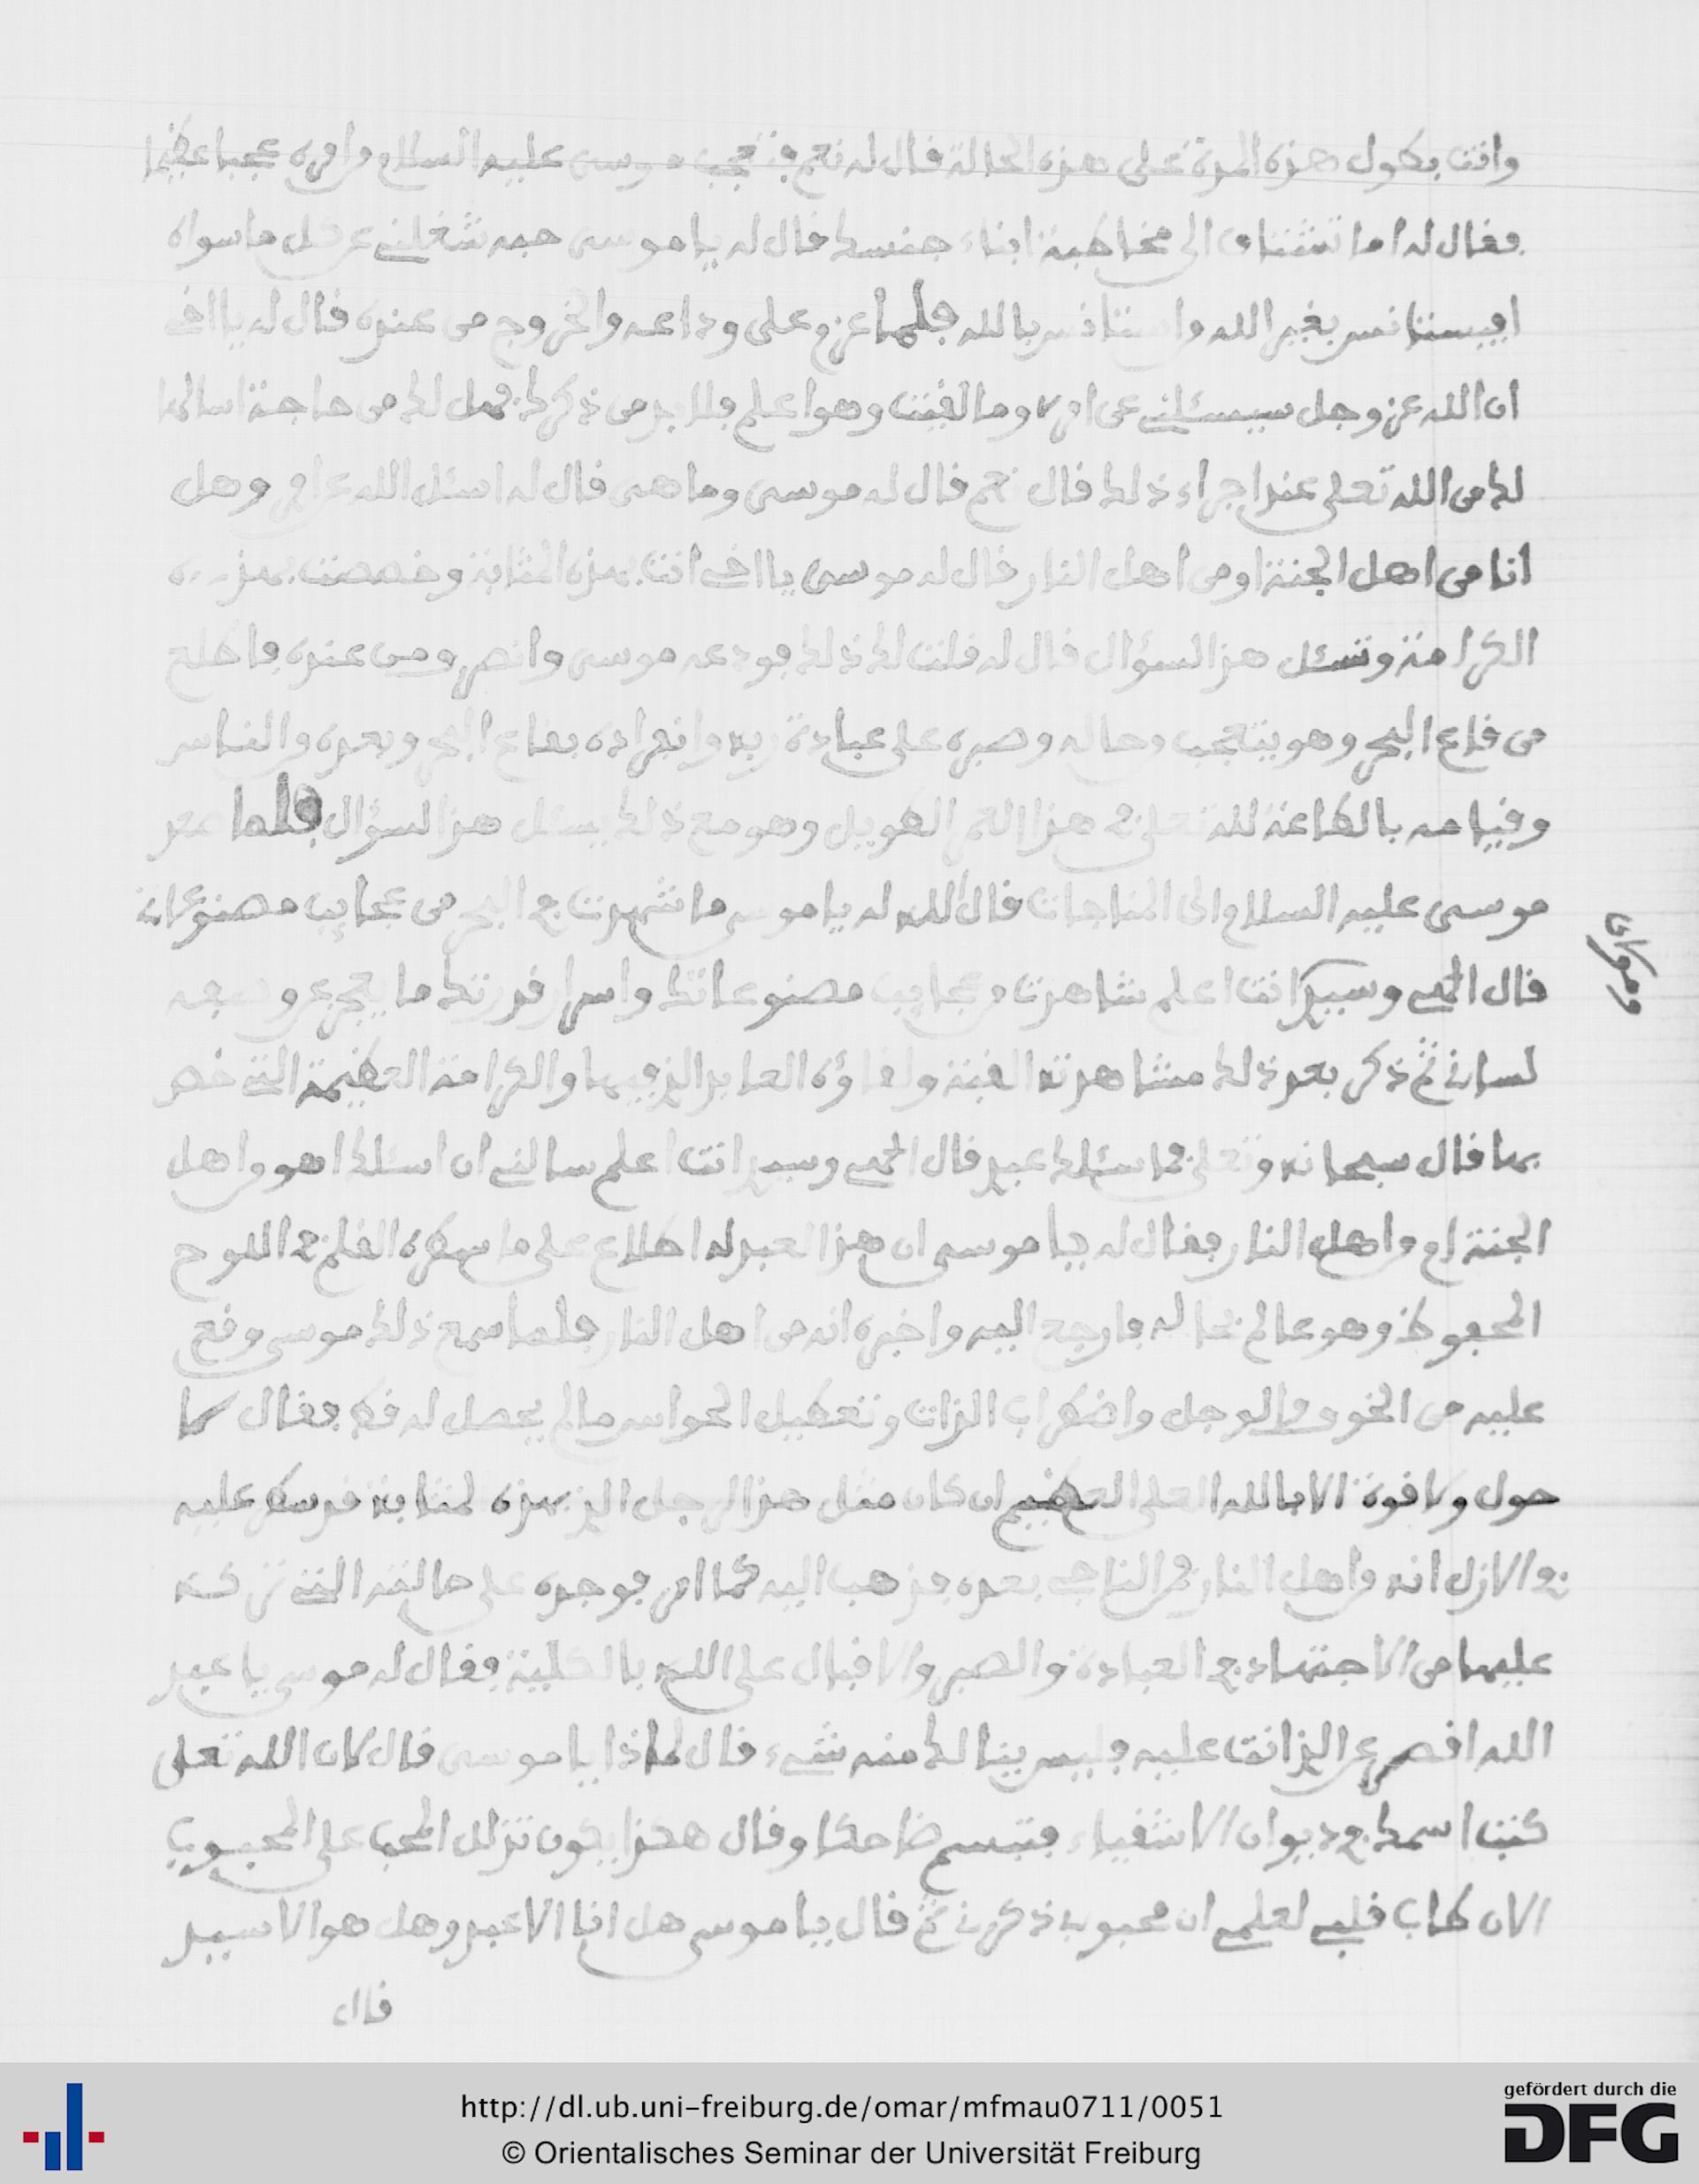 وانت بطول هذه المدة على هذه الحالة قال له نعم فتعجب موسى عليه السلام من امره عجبا عظيما
فقال له اما تشتاق الى مخاطبة ابناء جنسك قال له يا موسى حبه شغلني عن كل ما سواه
ايستانس بغير الله من استانس بالله فلما عزم على وداعه والخروج من عنده قال له يا اخي
ان الله عز وجل سيسئلني عن امرك وما لقيت وهو اعلم فلا بد من ذكرك فهل لك من حاجة اسالها
لك من الله تعلى عند اجراء ذلك قال نعم قال له موسى وما هى قال له اسئل الله عن امري وهل
انا من اهل الجنة او من اهل النار قال له موسى يا اخي انت بهذه المثابة وخصصت بهذه
الكرامة وتسئل هذا السؤال قال له قلت لك ذلك فودعه موسى وانصرف من عنده فاطلع
من قاع البحر وهو يتعجب من حاله وصبره على عبادة ربه وانفراده بقاع البحر وبعده من الناس
وقيامه بالطاعة لله تعلى في هذا العمر الطويل وهو مع ذلك يسئل هذا السؤال فلما صعد
موسى عليه السلام الى المناجات قال الله له يا موسى ما شهدت في البحر من عجايب مصنوعات
قال الهي وسيدي انت اعلم شاهدت من عجايب مصنوعاتك واسرار قدرتك ما يعجز عن وصفه
لساني ثم ذكر بعد ذلك مشاهدته القبة ولقاؤه العابد الذي فيها والكرامة العظيمة التي خص
بها قال سبحانه وتعلى فما سئلك عبدي قال الهي وسيدي انت اعلم سالني ان اسئلك اهو من اهل
الجنة ام من اهل النار فقال له يا موسى ان هذا العبد له اطلاع على ما سطره القلم في اللوح
المحفوظ وهو عالم بحاله فارجع اليه واخبره انه من اهل النار فلما سمع ذلك موسى وقع
عليه من الخوف والوجل واضطراب الذات وتعطيل الحواس ما لم يحصل له قط فقال لا
حول ولا قوة الا بالله العلي العظيم ان كان مثل هذا الرجل الذي بهذه المثابة قد سطر عليه
في الازل انه من اهل النار فمن الناجي بعده فذهب اليه كما امر فوجده على حالته التي تركه
عليها من الاجتهاد في العبادة والصبر والاقبال على الله بالكلية فقال له موسى يا عبد
الله اقصر عن الذي انت عليه فليس ينالك منه شيء قال لماذا يا موسى قال لان الله تعلى
كتب اسمك في ديوان الاشقياء فتبسم ضاحكا وقال هكذا يكون تذلل المحب على المحبوب
الان طاب قلبي لعلمي ان محبوبي ذكرني ثم قال يا موسى هل انا الا عبد وهل هو الا سيد
قال
http://dl.ub.uni-freiburg.de/omar/mfmau0711/0051
© Orientalisches Seminar der Universität Freiburg
gefördert durch die
DFG